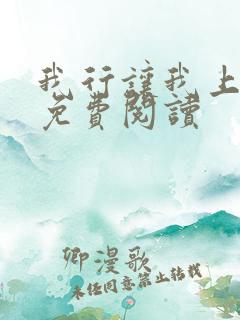 我行讓我上
免費閱讀
卿漫歌
未经同意禁止转载